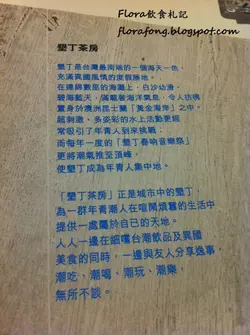 Flora飲食札記
florafong.blogspot.com
墾丁茶房
墾丁是台灣最南端的一個海天一色,
充滿異國風情的度假勝地。
在連綿數里的海灘上,白沙幼滑,
碧海藍天,滿載著海洋氣息,令人彷彿
置身於澳洲昆士蘭「黃金海岸」之中。
超刺激、多姿彩的水上活動更經
常吸引了年青人到來挑戰;
而每年一度的「墾丁春吶音樂祭」
更將潮氣推至頂峰,
使墾丁成為年青人集中地。
「墾丁茶房」正是城市中的墾丁,
為一群年青潮人在喧鬧煩囂的生活中
提供一處屬於自己的天地。
人人一邊在細嚐台潮飲品及異國
美食的同時,一邊與友人分享逸事,
潮吃、潮喝、潮玩、潮樂,
無所不談。